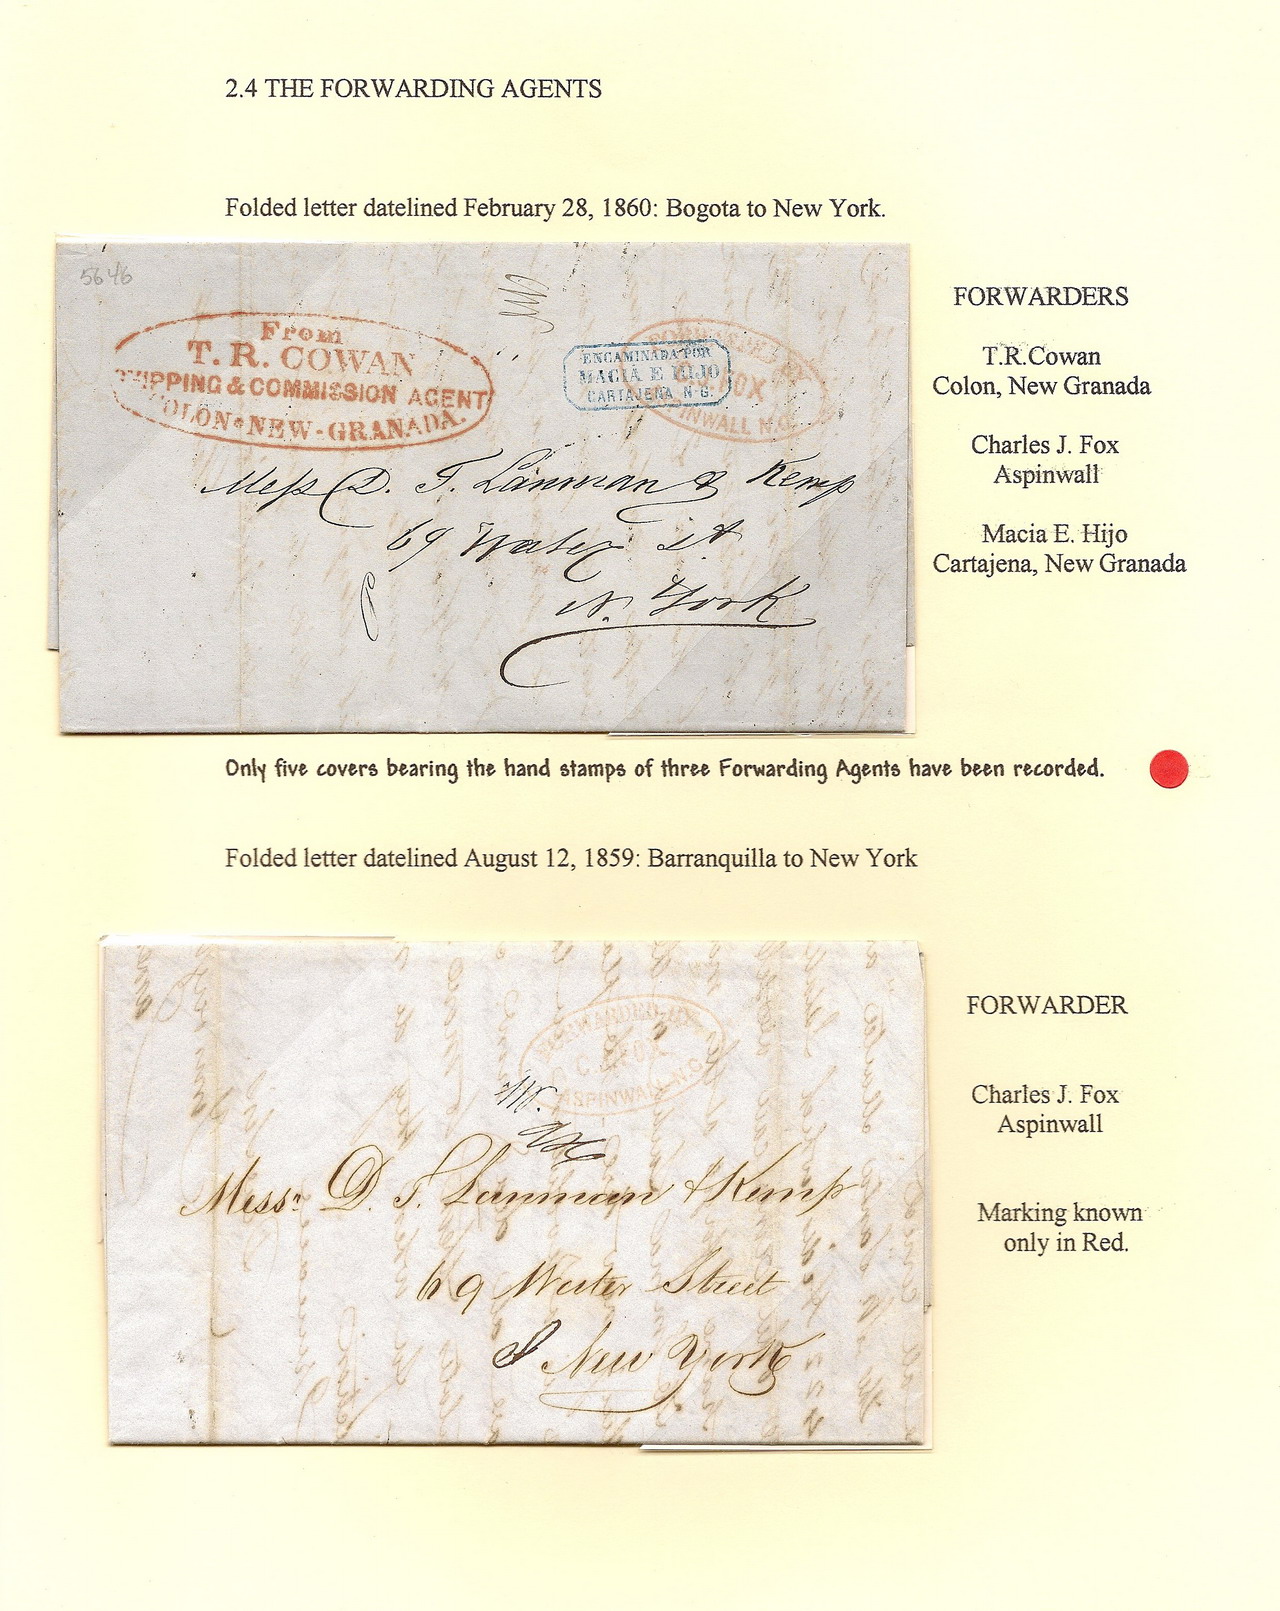 2.4 THE FORWARDING AGENTS
Folded letter datelined February 28, 1860: Bogota to New York.
5646
From
T. R. COWAN
SHIPPING & COMMISSION AGENT
COLON • NEW - GRANADA.
ENCAMINADA POR
MACIA E HIJO
CARTAJENA N. G.
FORWARDED BY
FOX
ASPINWALL N.G.
Mess D. T. Lanman & Kemp
69 Water St
N. York
FORWARDERS
T.R.Cowan
Colon, New Granada
Charles J. Fox
Aspinwall
Macia E. Hijo
Cartajena, New Granada
Only five covers bearing the hand stamps of three Forwarding Agents have been recorded.
Folded letter datelined August 12, 1859: Barranquilla to New York
FORWARDED BY
C. J. FOX
ASPINWALL N.G.
Messrs D. T. Lanman & Kemp
69 Water Street
New York
FORWARDER
Charles J. Fox
Aspinwall
Marking known
only in Red.